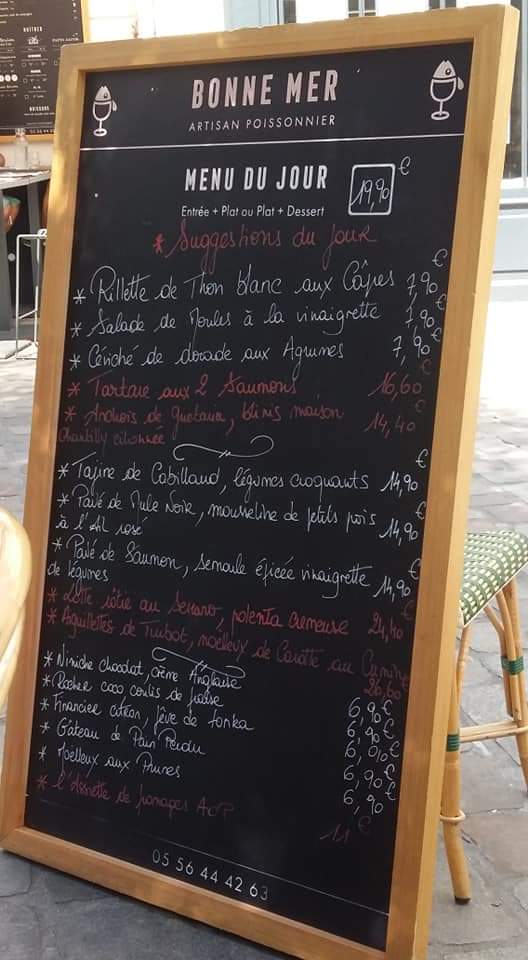 BONNE MER
ARTISAN POISSONNIER
MENU DU JOUR
19,90 €
Entrée + Plat ou Plat + Dessert
* Suggestions du jour
* Rillette de Thon blanc aux Câpres 7,90 €
* Salade de Moules à la vinaigrette 7,90 €
* Céviché de dorade aux Agrumes 7,90 €
* Tartare aux 2 Saumons 16,60 €
* Anchois de guetaria, blinis maison 14,40 €
Chantilly citonnée
* Tajine de Cabillaud, légumes croquants 14,90 €
* Pavé de Mule Noir, mousseline de petits pois 14,90 €
à l'Ail rosé
* Pavé de Saumon, semoule épicée vinaigrette 14,90 €
de légumes
* Lotte rôtie au Serrano, polenta crémeuse 24,40 €
* Aiguillettes de Turbot, moëlleux de Carotte au Cumin
26,60 €
* Niniche chocolat, crème Anglaise 6,90 €
* Rocher coco coulis de fraise 6,90 €
* Financier citron, fève de tonka 6,90 €
* Gâteau de Pain Perdu 6,90 €
* Moëlleux aux Prunes 6,90 €
* l'Assiette de fromages AOP 11 €
05 56 44 42 63